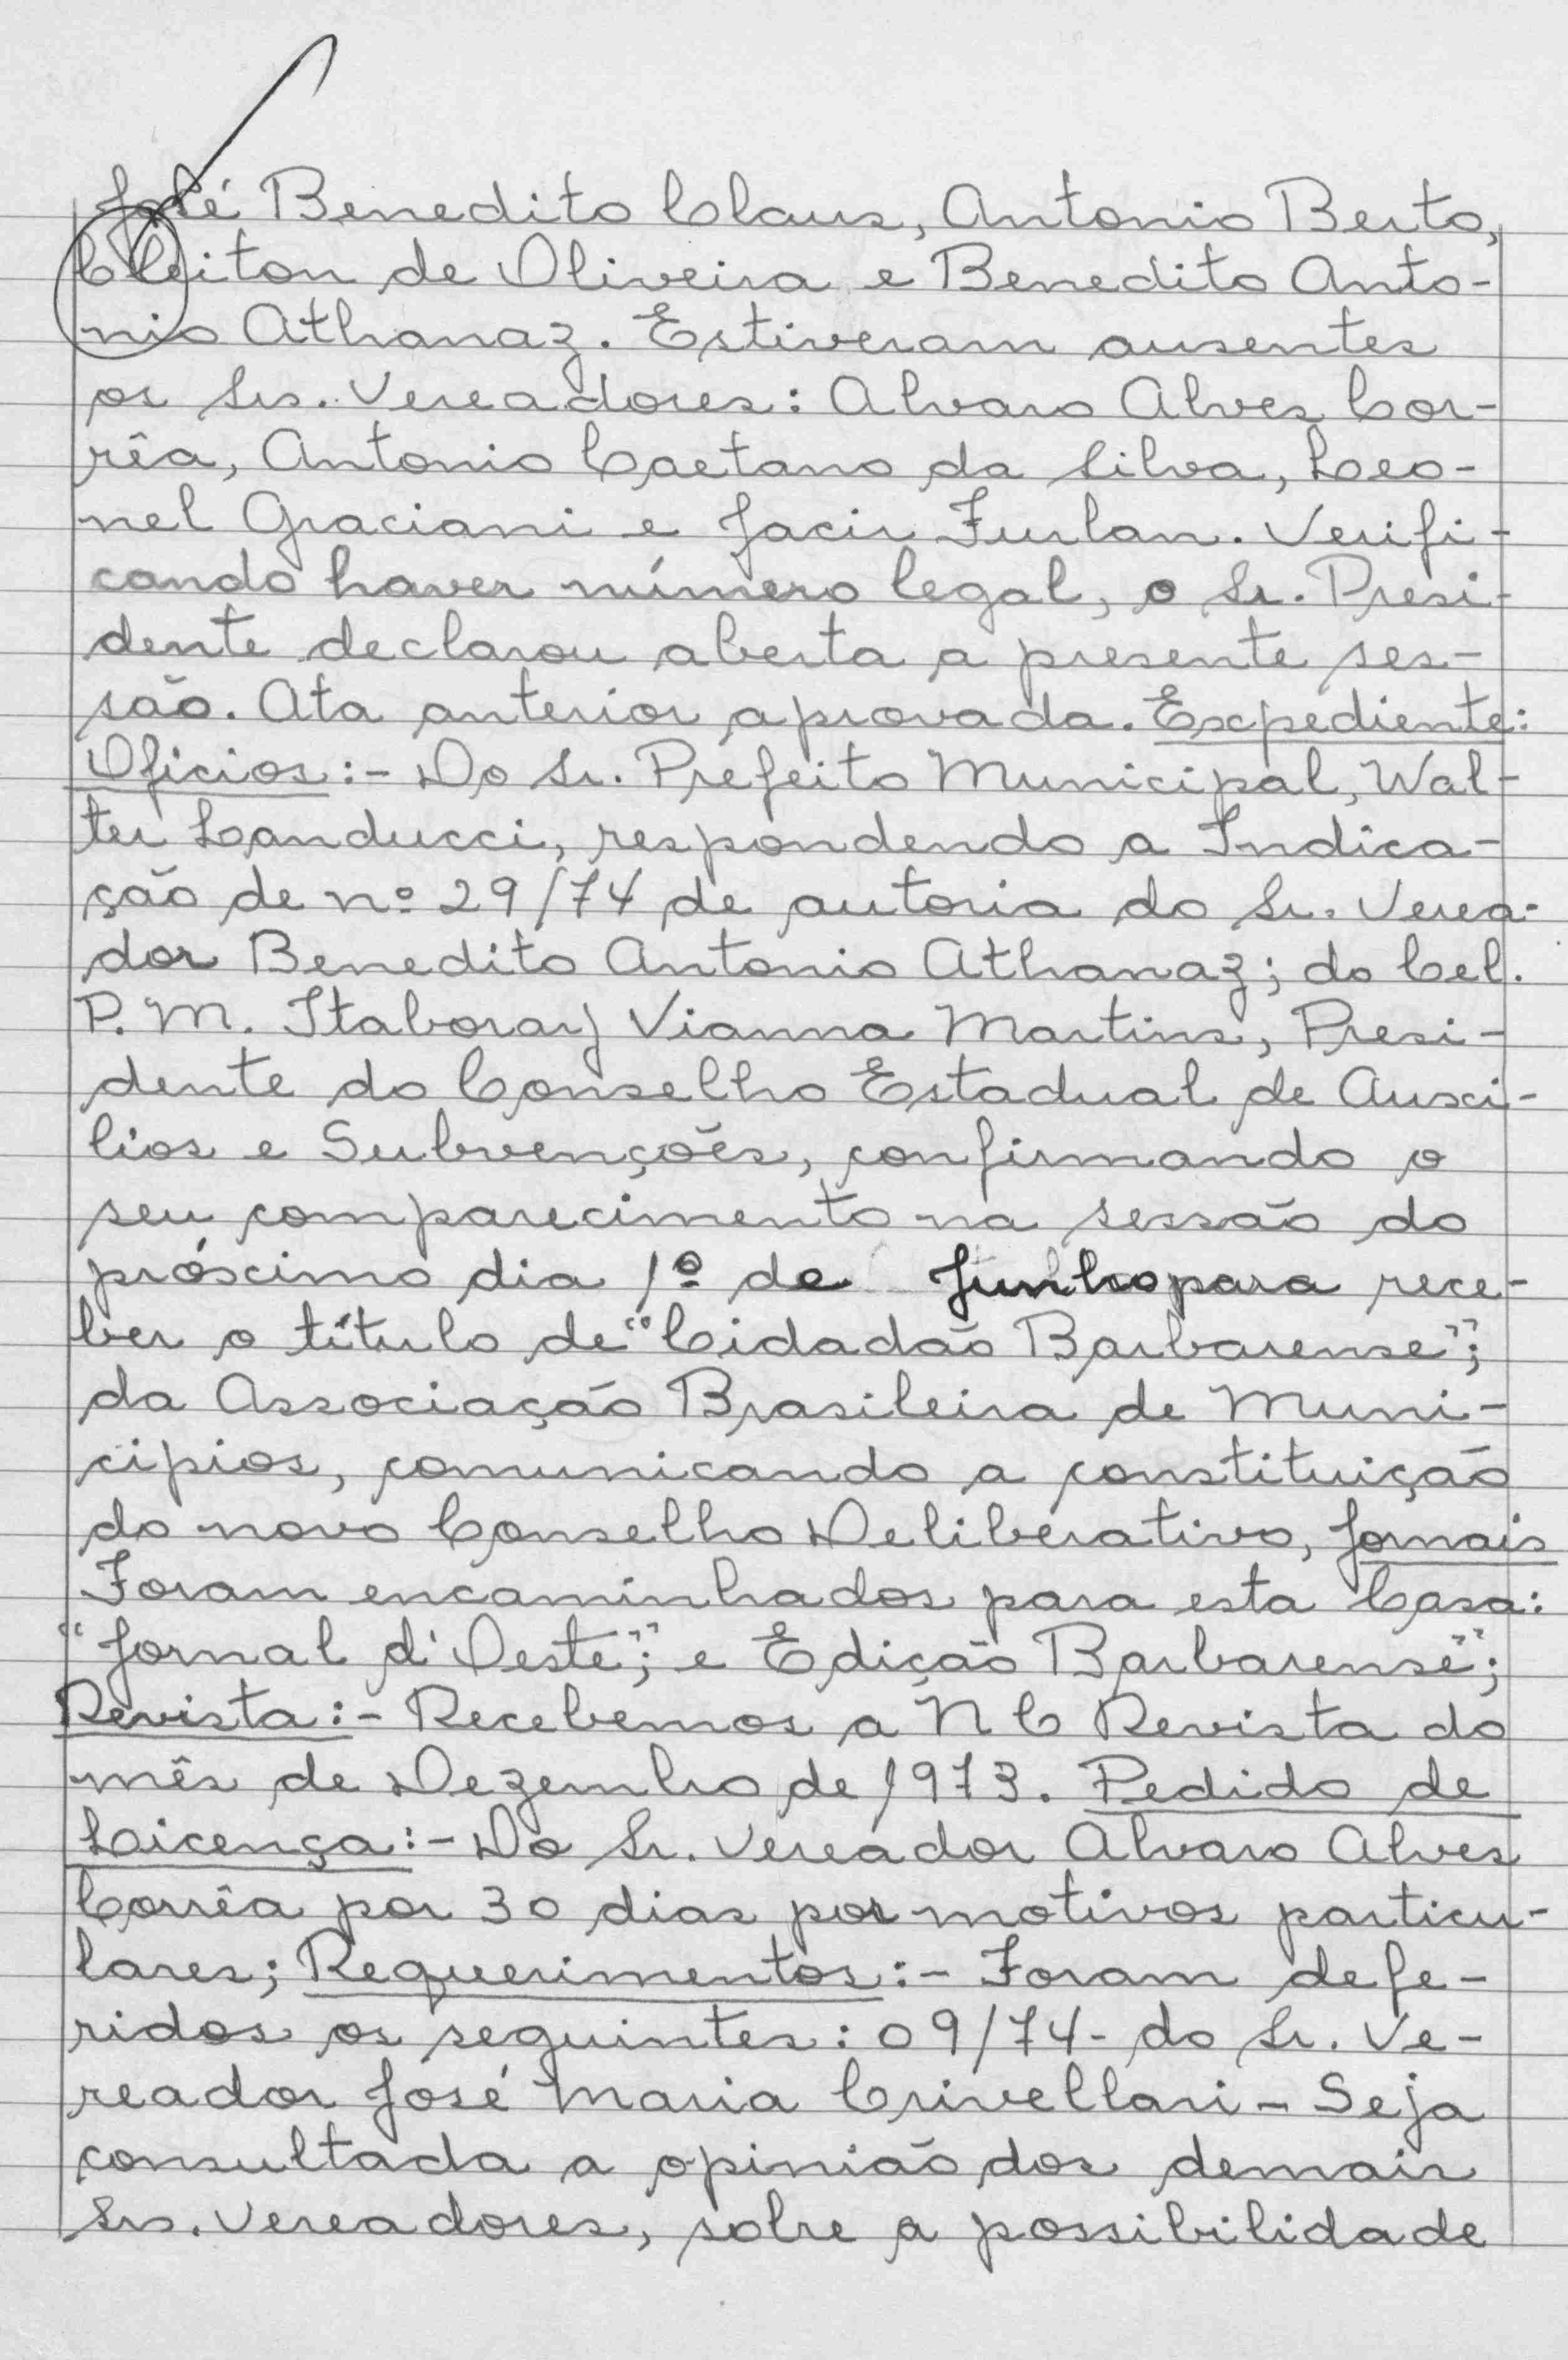 José Benedito Claus, Antonio Berto,
Cleiton de Oliveira e Benedito Anto-
nio Athanaz. Estiveram ausentes
os Srs. Vereadores: Alvaro Alves Cor-
rêa, Antonio Caetano da Silva, Leo-
nel Graciani e Jacir Furlan. Verifi-
cando haver número legal, o Sr. Presi-
dente declarou aberta a presente ses-
são. Ata anterior aprovada. Expediente:
Oficios:- Do Sr. Prefeito Municipal, Wal-
ter Landucci, respondendo a Indica-
ção de nº 29/74 de autoria do Sr. Verea-
dor Benedito Antonio Athanaz; do Cel.
P. M. Itaboray Vianna Martins, Presi-
dente do Conselho Estadual de Auxi-
lios e Subvenções, confirmando o
seu comparecimento na sessão do
próximo dia 1º de Junho para rece-
ber o título de "Cidadão Barbarense";
da Associação Brasileira de Muni-
cipios, comunicando a constituição
do novo Conselho Deliberativo, Jornais
Foram encaminhados para esta Casa:
"Jornal d'Oeste"; e Edição Barbarense";
Revista:- Recebemos a N C Revista do
mês de Dezembro de 1973. Pedido de
Licença:- Do Sr. Vereador Alvaro Alves
Corrêa por 30 dias por motivos particu-
lares; Requerimentos:- Foram defe-
ridos os seguintes: 09/74- do Sr. Ve-
reador José Maria Crivellari - Seja
consultada a opinião dos demais
Srs. Vereadores, sobre a possibilidade